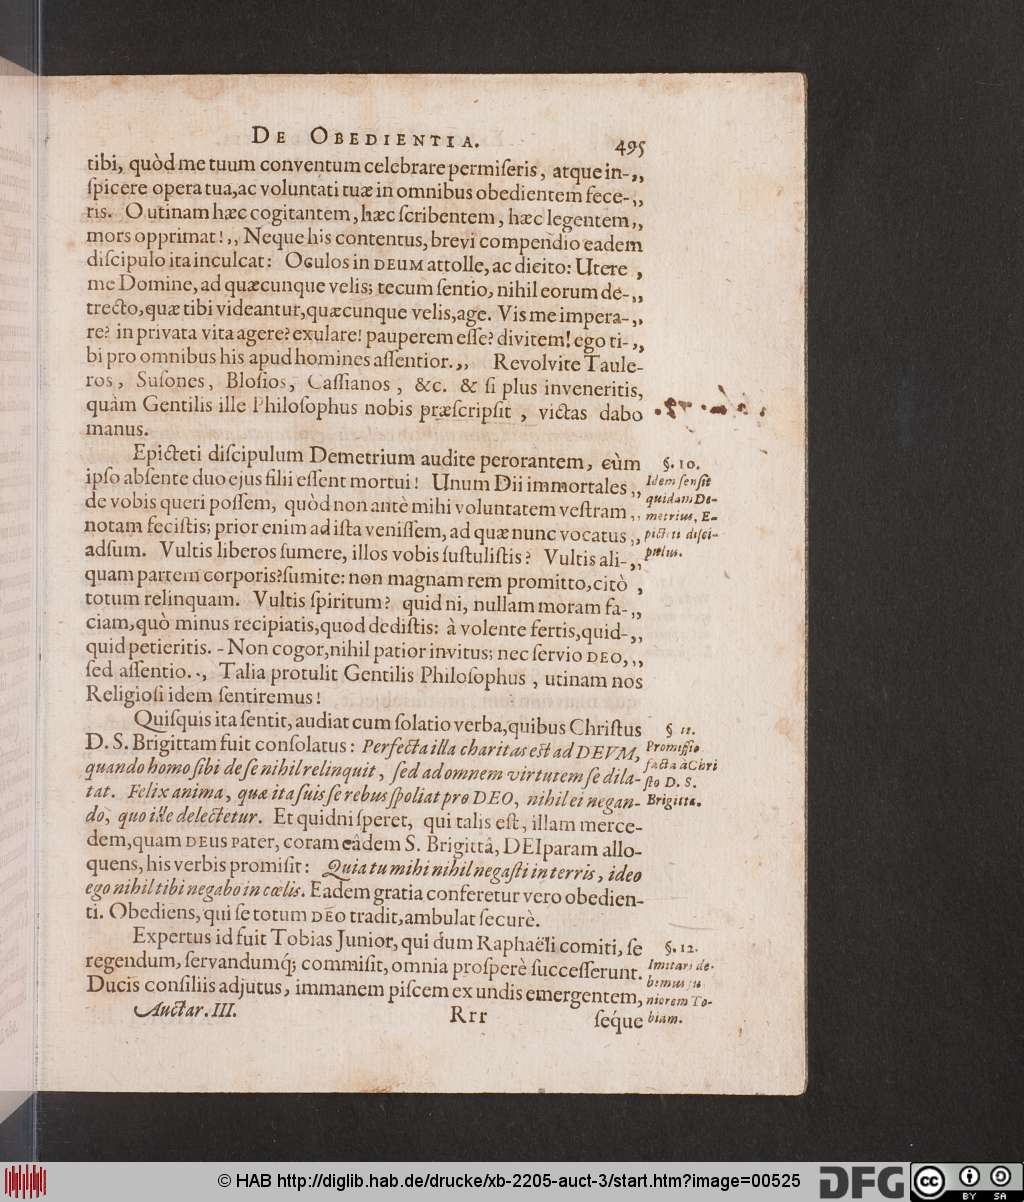 DE OBEDIENTIA. 495
tibi, quòd me tuum conventum celebrare permiſeris, atque in-,,
ſpicere opera tua, ac voluntati tuæ in omnibus obedientem fece-,,
ris. O utinam hæc cogitantem, hæc ſcribentem, hæc legentem,,
mors opprimat!,, Neque his contentus, brevi compendio eadem
diſcipulo ita inculcat: Oculos in DEUM attolle, ac dicito: Utere ,
me Domine, ad quæcunque velis; tecum ſentio, nihil eorum de-,,
trecto, quæ tibi videantur, quæcunque velis, age. Vis me impera-,,
re? in privata vita agere? exulare! pauperem eſſe? divitem! ego ti-,,
bi pro omnibus his apud homines aſſentior.,, Revolvite Taule-
ros, Suſones, Bloſios, Caſſianos, &c. & ſi plus inveneritis,
quàm Gentilis ille Philoſophus nobis præſcripſit, victas dabo
manus.
Epicteti diſcipulum Demetrium audite perorantem, cùm
ipſo abſente duo ejus filii eſſent mortui! Unum Dii immortales,,
de vobis queri poſſem, quòd non antè mihi voluntatem veſtram,,
notam feciſtis; prior enim ad iſta veniſſem, ad quæ nunc vocatus,,
adſum. Vultis liberos ſumere, illos vobis ſuſtuliſtis? Vultis ali-,,
quam partem corporis? ſumite: non magnam rem promitto, citò ,
totum relinquam. Vultis ſpiritum? quid ni, nullam moram fa-,,
ciam, quò minus recipiatis, quod dediſtis: à volente fertis, quid-,,
quid petieritis. - Non cogor, nihil patior invitus; nec ſervio DEO,,,
ſed aſſentio.,, Talia protulit Gentilis Philoſophus, utinam nos
Religioſi idem ſentiremus!
§. 10.
Idem ſenſit
quidam De-
metrius, E-
picteti diſci-
pulus.
Quiſquis ita ſentit, audiat cum ſolatio verba, quibus Chriſtus
D. S. Brigittam fuit conſolatus: Perfecta illa charitas est ad DEVM,
quando homo ſibi de ſe nihil relinquit, ſed ad omnem virtutem ſe dila-
tat. Felix anima, quæ ita ſuis ſe rebus ſpoliat pro DEO, nihil ei negan-
do, quo ille delectetur. Et quidni ſperet, qui talis eſt, illam merce-
dem, quam DEUS PATER, coram eâdem S. Brigittâ, DEIparam allo-
quens, his verbis promiſit: Quia tu mihi nihil negaſti in terris, ideo
ego nihil tibi negabo in cœlis. Eadem gratia conferetur vero obedien-
ti. Obediens, qui ſe totum DEO tradit, ambulat ſecurè.
§ 11.
Promiſſio
facta à Chri
ſto D. S.
Brigittæ.
Expertus id fuit Tobias Junior, qui dum Raphaëli comiti, ſe
regendum, ſervandumq́; commiſit, omnia proſperè ſucceſſerunt.
Ducis conſiliis adjutus, immanem piſcem ex undis emergentem,
§. 12.
Imitari de-
bemus ju
niorem To-
biam.
Auctar. III. Rrr ſéque
© HAB http://diglib.hab.de/drucke/xb-2205-auct-3/start.htm?image=00525
DFG
cc BY SA